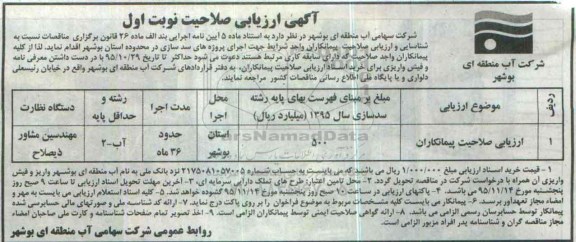 آگهی ارزیابی صلاحیت نوبت اول
شرکت آب منطقه ای
بوشهر
شرکت سهامی آب منطقه ای بوشهر در نظر دارد به استناد ماده ۵ آیین نامه اجرایی بند الف ماده ۲۶ قانون برگزاری مناقصات نسبت به
شناسایی و ارزیابی صلاحیت پیمانکاران واجد شرایط جهت اجرای پروژه های سد سازی در محدوده استان بوشهر اقدام نماید. لذا از کلیه
پیمانکاران واجد صلاحیت که دارای سابقه کاری مرتبط هستند دعوت می شود حداکثر تا تاریخ ۹۵/۱۰/۲۹ با در دست داشتن معرفی نامه
و فیش واریزی برای خرید اسناد ارزیابی صلاحیت پیمانکاران، به دفتر قراردادهای شرکت آب منطقه ای بوشهر واقع در خیابان رئیسعلی
دلواری و یا پایگاه ملی اطلاع رسانی مناقصات کشور مراجعه نمایند.
ردیف
موضوع ارزیابی
مبلغ بر مبنای فهرست بهای پایه رشته سدسازی سال ۱۳۹۵ (میلیارد ریال)
محل اجرا
مدت اجرا
رشته و حداقل پایه
دستگاه نظارت
۱
ارزیابی صلاحیت پیمانکاران
۵۰۰
استان بوشهر
حدود ۳۶ ماه
آب-۲
مهندسین مشاور ذیصلاح
ParsNamadData
۱- قیمت خرید اسناد ارزیابی مبلغ ۱/۰۰۰/۰۰۰ ریال می باشد که می بایست به حساب شماره ۲۱۷۵۰۸۱۰۵۷۰۰۵ نزد بانک ملی به نام آب منطقه ای بوشهر واریز و فیش
واریزی آن همراه با درخواست شرکت در مناقصه تحویل گردد. ۲- محل تامین اعتبار: طرح های تملک دارایی سرمایه ای، ۳- آخرین مهلت تحویل اسناد ارزیابی تا ساعت ۹ صبح روز
پنجشنبه مورخ ۹۵/۱۱/۱۴ می باشد. ۴- پاکتهای ارزیابی در ساعت ۱۰ صبح روز پنجشنبه مورخ ۹۵/۱۱/۱۴ گشوده خواهد شد. ۵- کلیه اسناد استعلام ارزیابی می بایست به مهر و
امضاء مجاز تعهدآور برسد. ۶- پیمانکار می بایست کلیه مشخصات مربوط به موضوع فراخوان را بر روی پاکت درج نماید. ۷- ارائه کد شناسه ملی و صورتهای مالی حسابرسی شده
پیمانکار توسط حسابرسان رسمی الزامی می باشد. ۸- ارائه گواهی صلاحیت ایمنی توسط پیمانکاران الزامی است. ۹- اخذ تصویر تمام صفحات شناسنامه و کارت ملی صاحبان امضاء
مجاز مناقصه گران و شناسنامه پدر افراد مزبور الزامی است.
روابط عمومی شرکت سهامی آب منطقه ای بوشهر